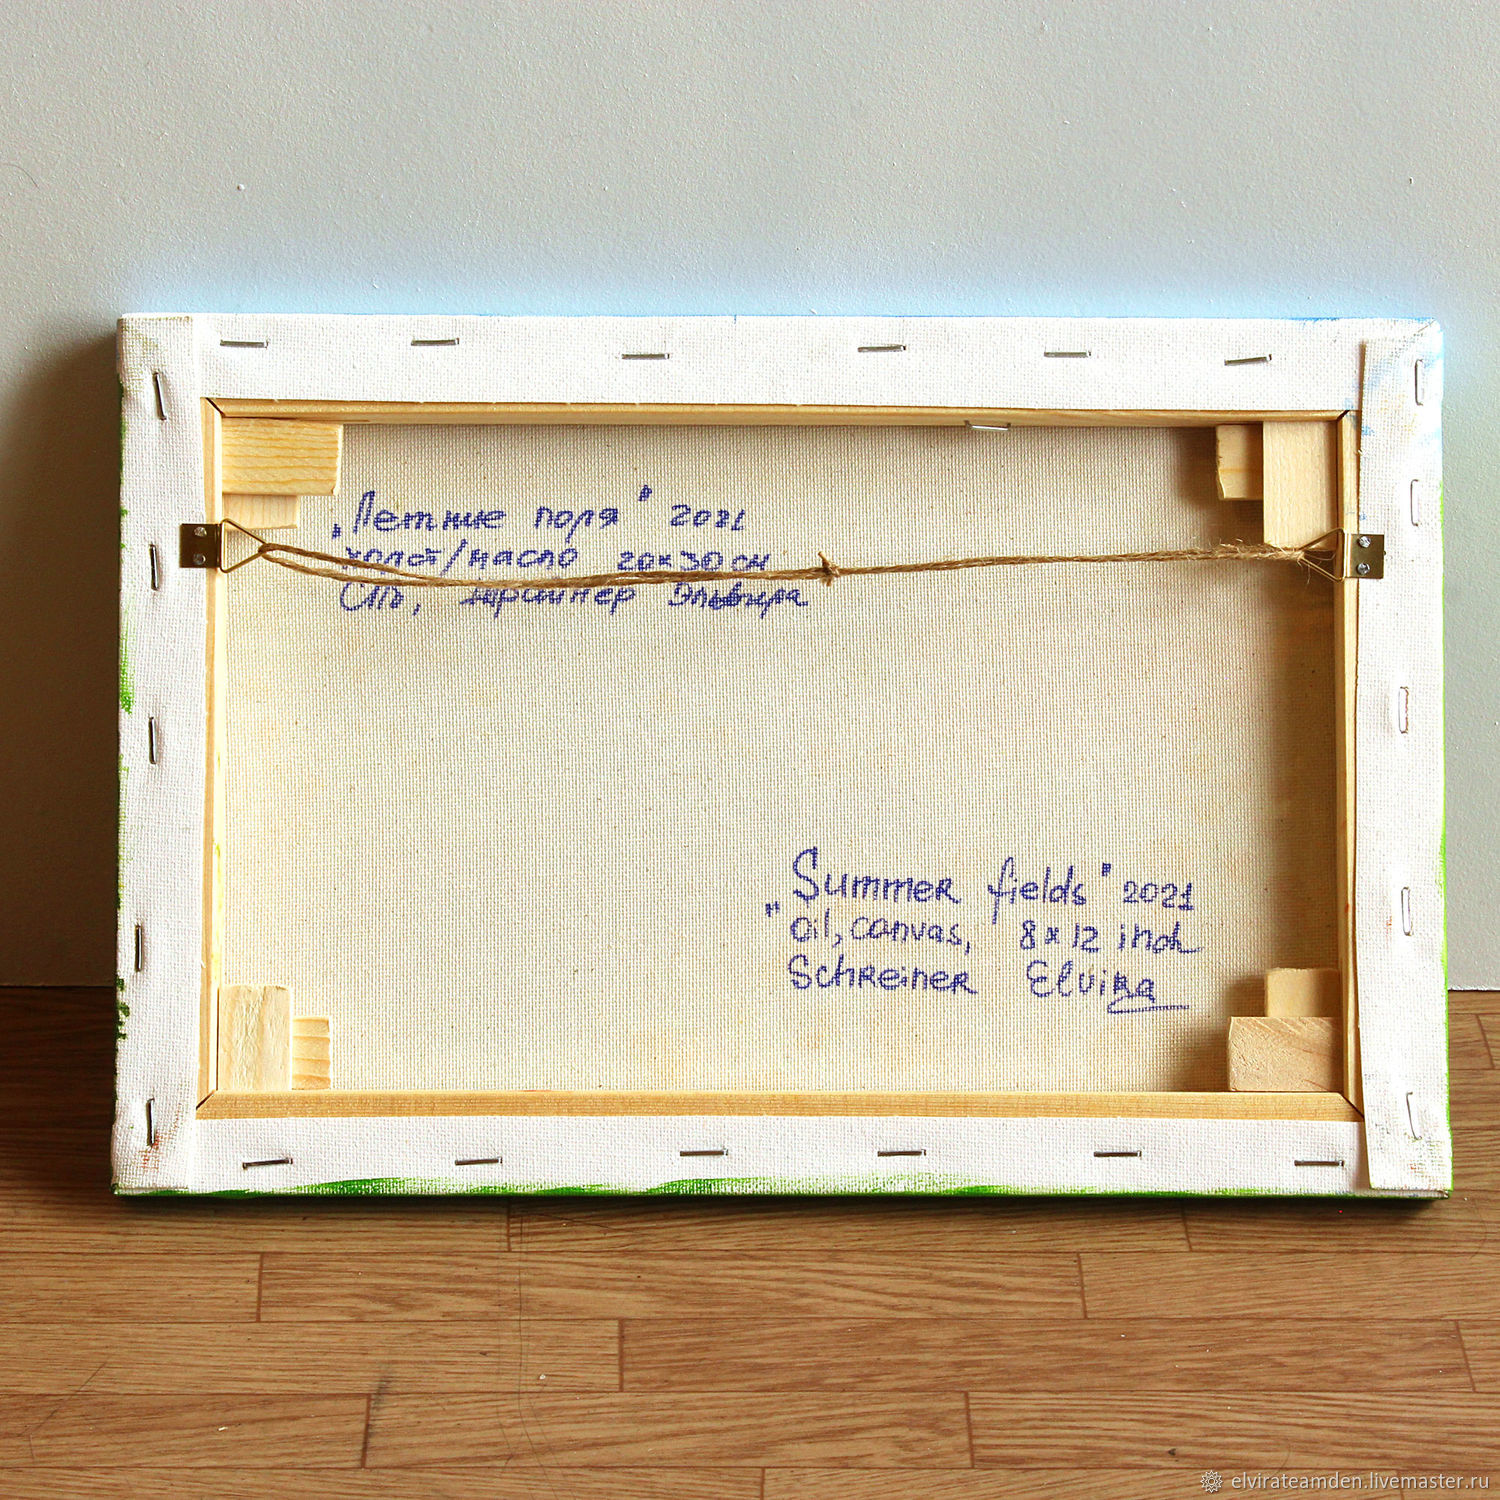 „Летние поля" 2021
холст/масло 20×30 см
СПб, Шрайнер Эльвира
Summer fields" 2021
" oil, canvas, 8×12 inch
Schreiner Elvira
elvirateamden.livemaster.ru